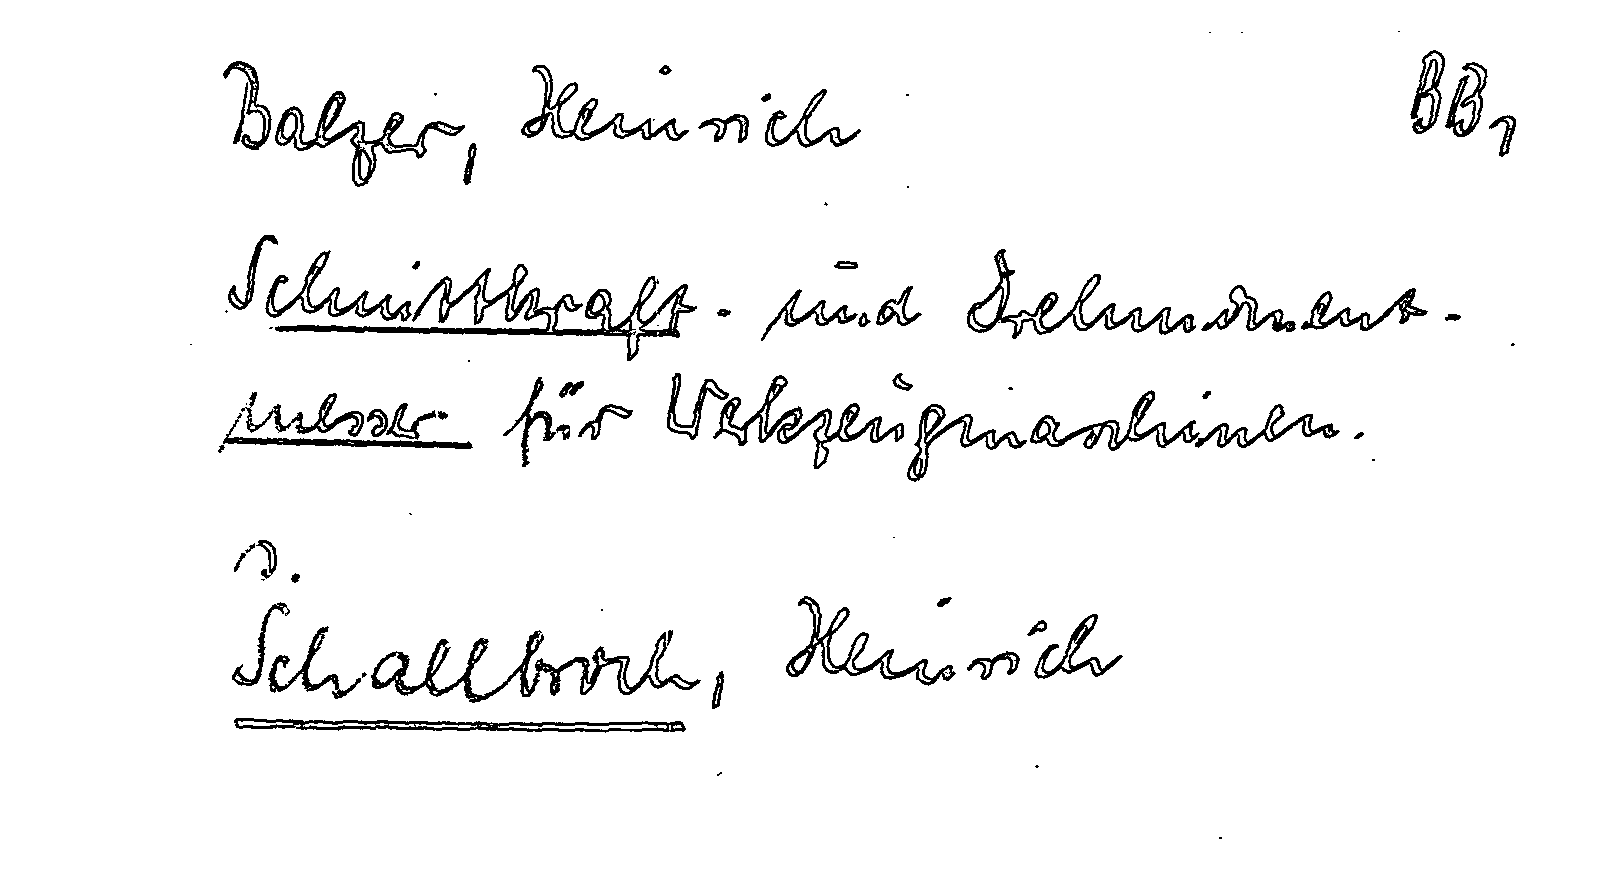 Balzer, Heinrich BB,
Schnittkraft- und Drehmoment-
messer für Werkzeugmaschinen.
s.
Schallbroch, Heinrich